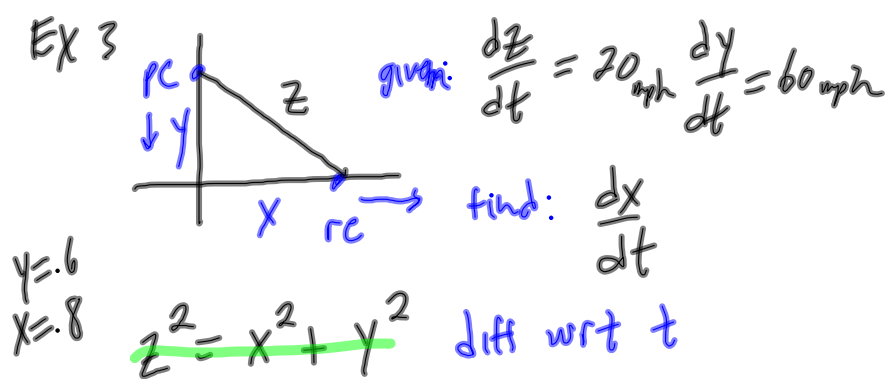 Ex 3
pc
↓ y
z
x
rc →
given: dz/dt = 20 mph dy/dt = 60 mph
find: dx/dt
y=.6
x=.8
z² = x² + y²
diff wrt t